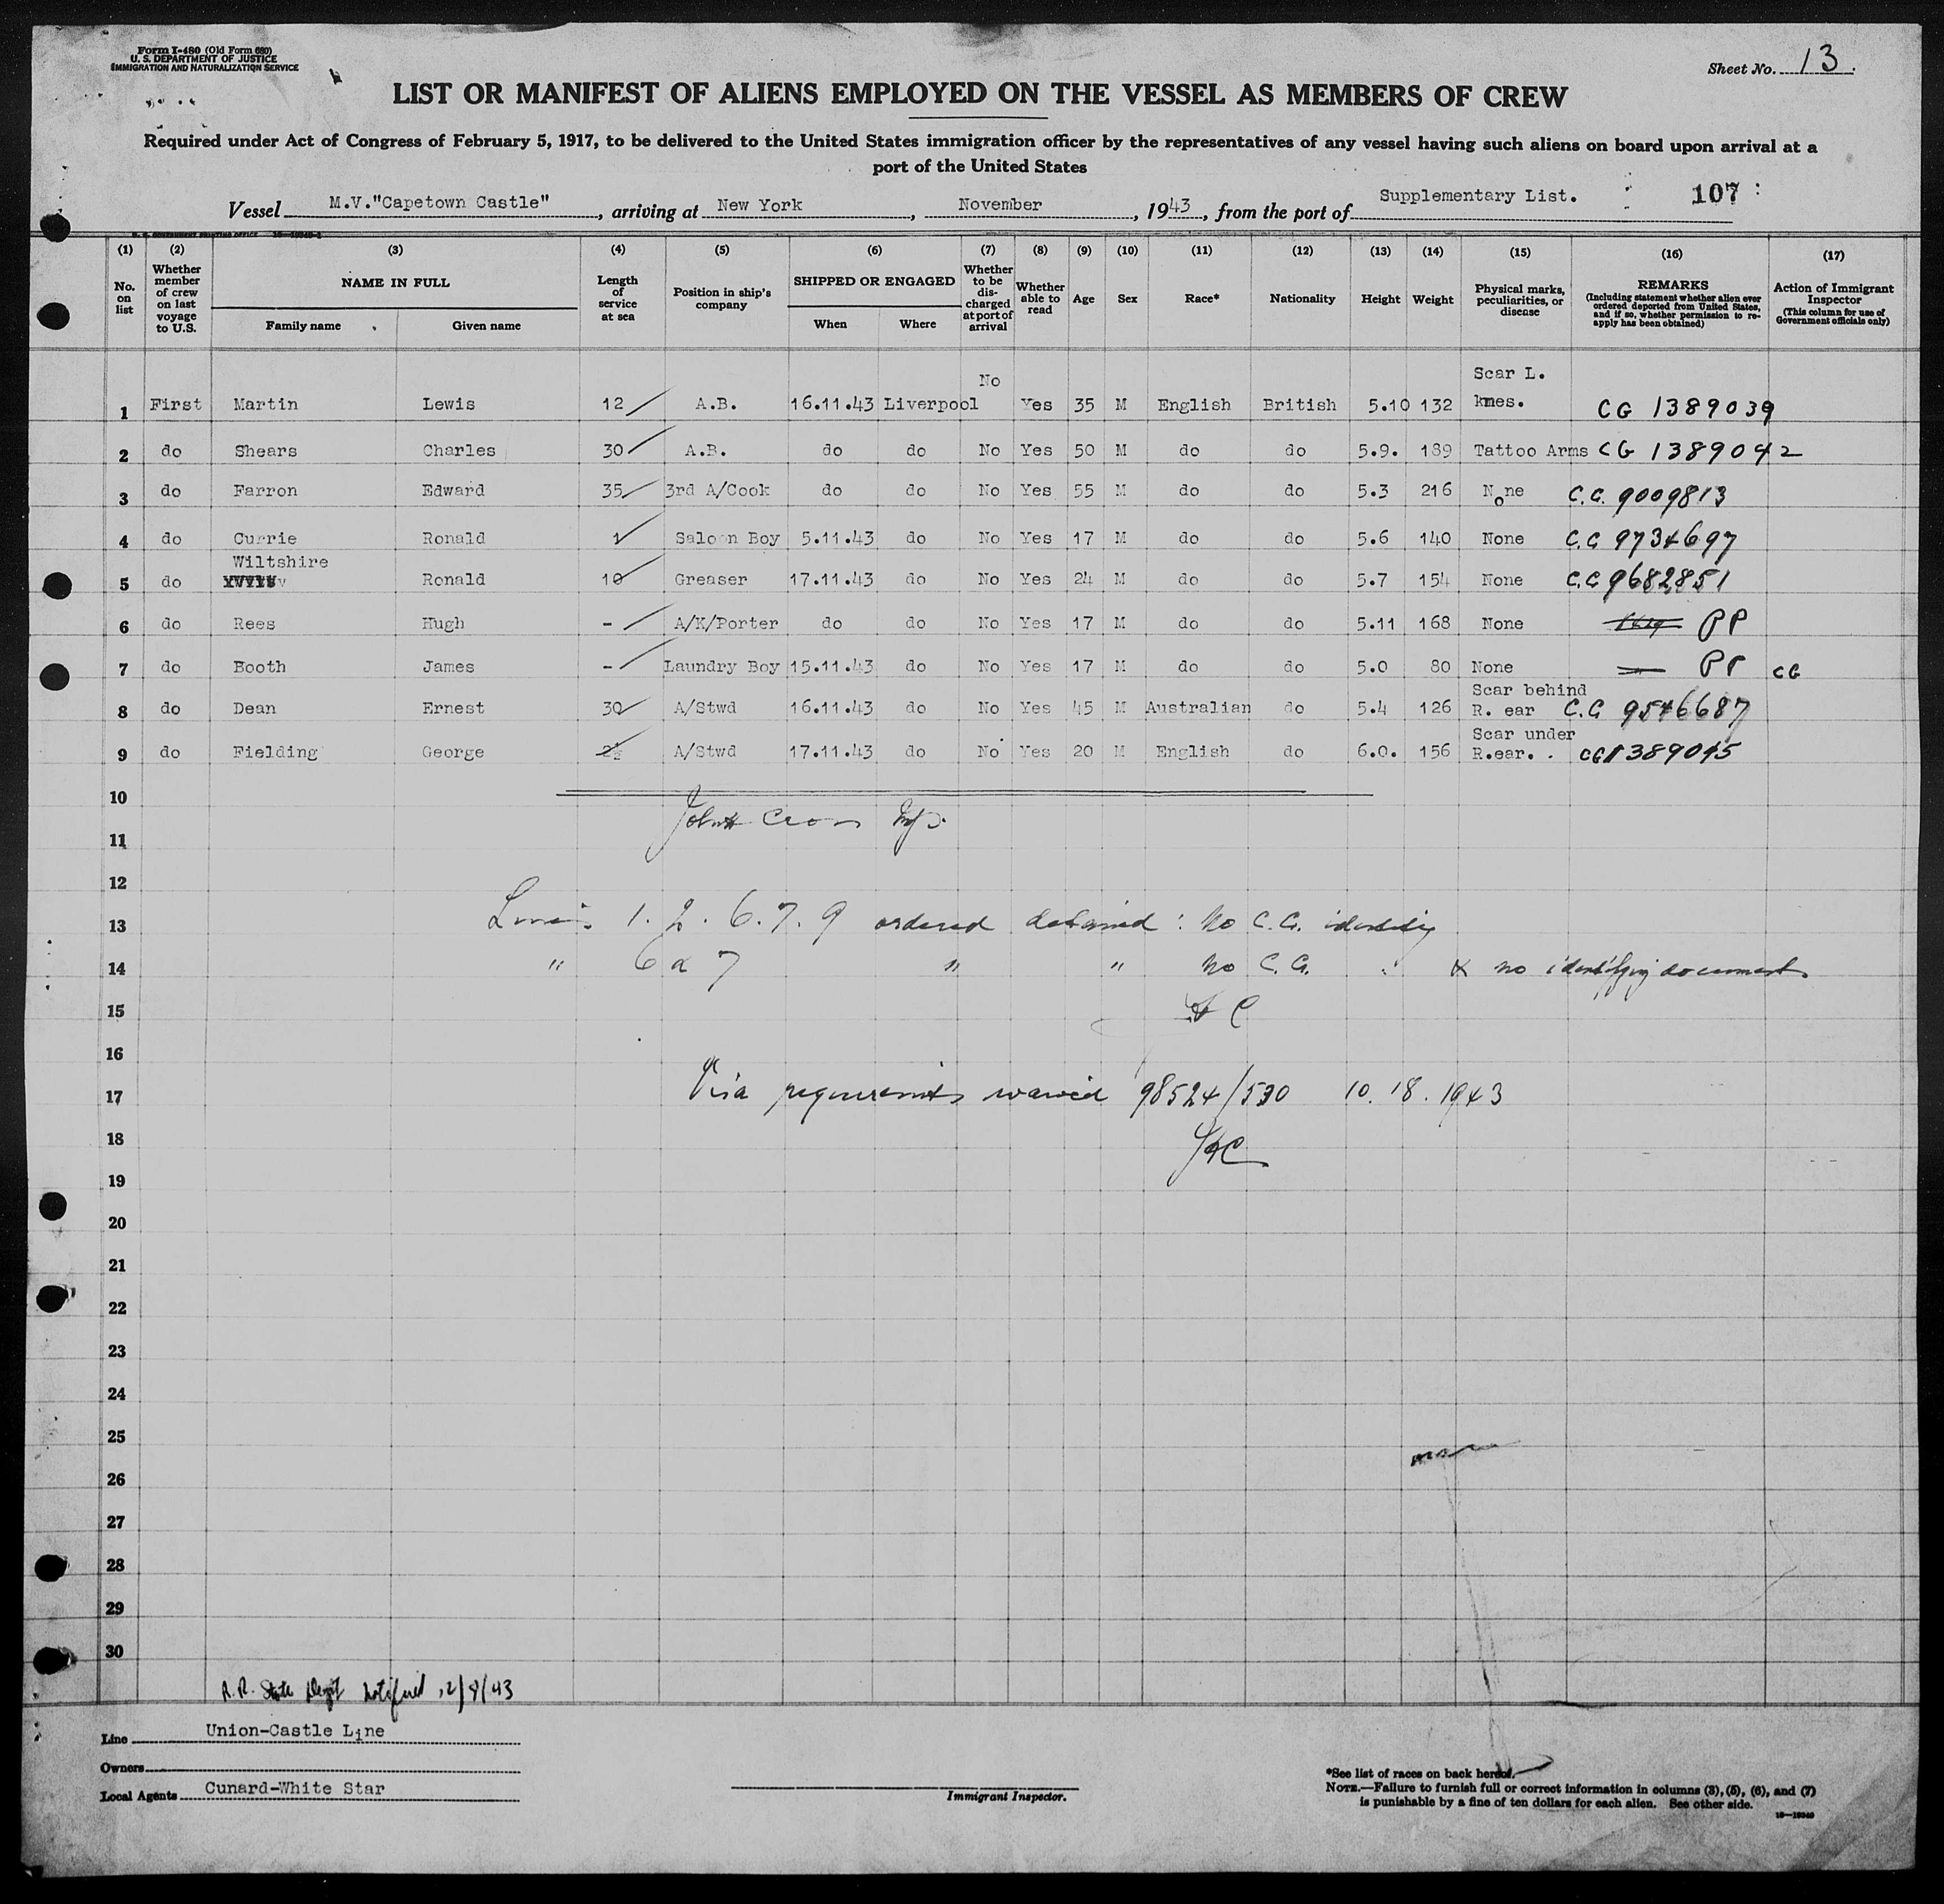 Form I-480 (Old Form 680)
U. S. DEPARTMENT OF JUSTICE
IMMIGRATION AND NATURALIZATION SERVICE
Sheet No. 13.
LIST OR MANIFEST OF ALIENS EMPLOYED ON THE VESSEL AS MEMBERS OF CREW
Required under Act of Congress of February 5, 1917, to be delivered to the United States immigration officer by the representatives of any vessel having such aliens on board upon arrival at a
port of the United States
Vessel M.V."Capetown Castle", arriving at New York, November, 1943, from the port of Supplementary List. 107
(1) (2) (3) (4) (5) (6) (7) (8) (9) (10) (11) (12) (13) (14) (15) (16) (17)
No. on list
Whether member of crew on last voyage to U.S.
NAME IN FULL
Family name Given name
Length of service at sea
Position in ship's company
SHIPPED OR ENGAGED
When Where
Whether to be discharged at port of arrival
Whether able to read
Age
Sex
Race*
Nationality
Height
Weight
Physical marks, peculiarities, or disease
REMARKS
(Including statement whether alien ever ordered deported from United States, and if so, whether permission to re-apply has been obtained)
Action of Immigrant Inspector
(This column for use of Government officials only)
1 First Martin Lewis 12 A.B. 16.11.43 Liverpool No Yes 35 M English British 5.10 132 Scar L. knes. CG 1389039
2 do Shears Charles 30 A.B. do do No Yes 50 M do do 5.9. 189 Tattoo Arms CG 1389042
3 do Farron Edward 35 3rd A/Cook do do No Yes 55 M do do 5.3 216 None C.G. 9009813
4 do Currie Ronald 1 Saloon Boy 5.11.43 do No Yes 17 M do do 5.6 140 None C.G 9734697
5 do Wiltshire Ronald 10 Greaser 17.11.43 do No Yes 24 M do do 5.7 154 None C.G 9682851
6 do Rees Hugh - A/K/Porter do do No Yes 17 M do do 5.11 168 None PP
7 do Booth James - Laundry Boy 15.11.43 do No Yes 17 M do do 5.0 80 None PP CG
8 do Dean Ernest 30 A/Stwd 16.11.43 do No Yes 45 M Australian do 5.4 126 Scar behind R. ear C.G 9546687
9 do Fielding George 2½ A/Stwd 17.11.43 do No Yes 20 M English do 6.0. 156 Scar under R.ear. CG 1389045
10
11
12
13 Lines 1. 2. 6. 7. 9 ordered detained : No C.G. identity
14 " 6 & 7 " " No C.G. " & no identifying documents
15
16
17 Visa requirements waived 98524/530 10.18.1943
18 JHC
19
20
21
22
23
24
25
26
27
28
29
30
R.R. State Dept notified 12/8/43
Line Union-Castle Line
Owners
Local Agents Cunard-White Star
Immigrant Inspector.
*See list of races on back hereof.
NOTE.—Failure to furnish full or correct information in columns (3), (5), (6), and (7)
is punishable by a fine of ten dollars for each alien. See other side.